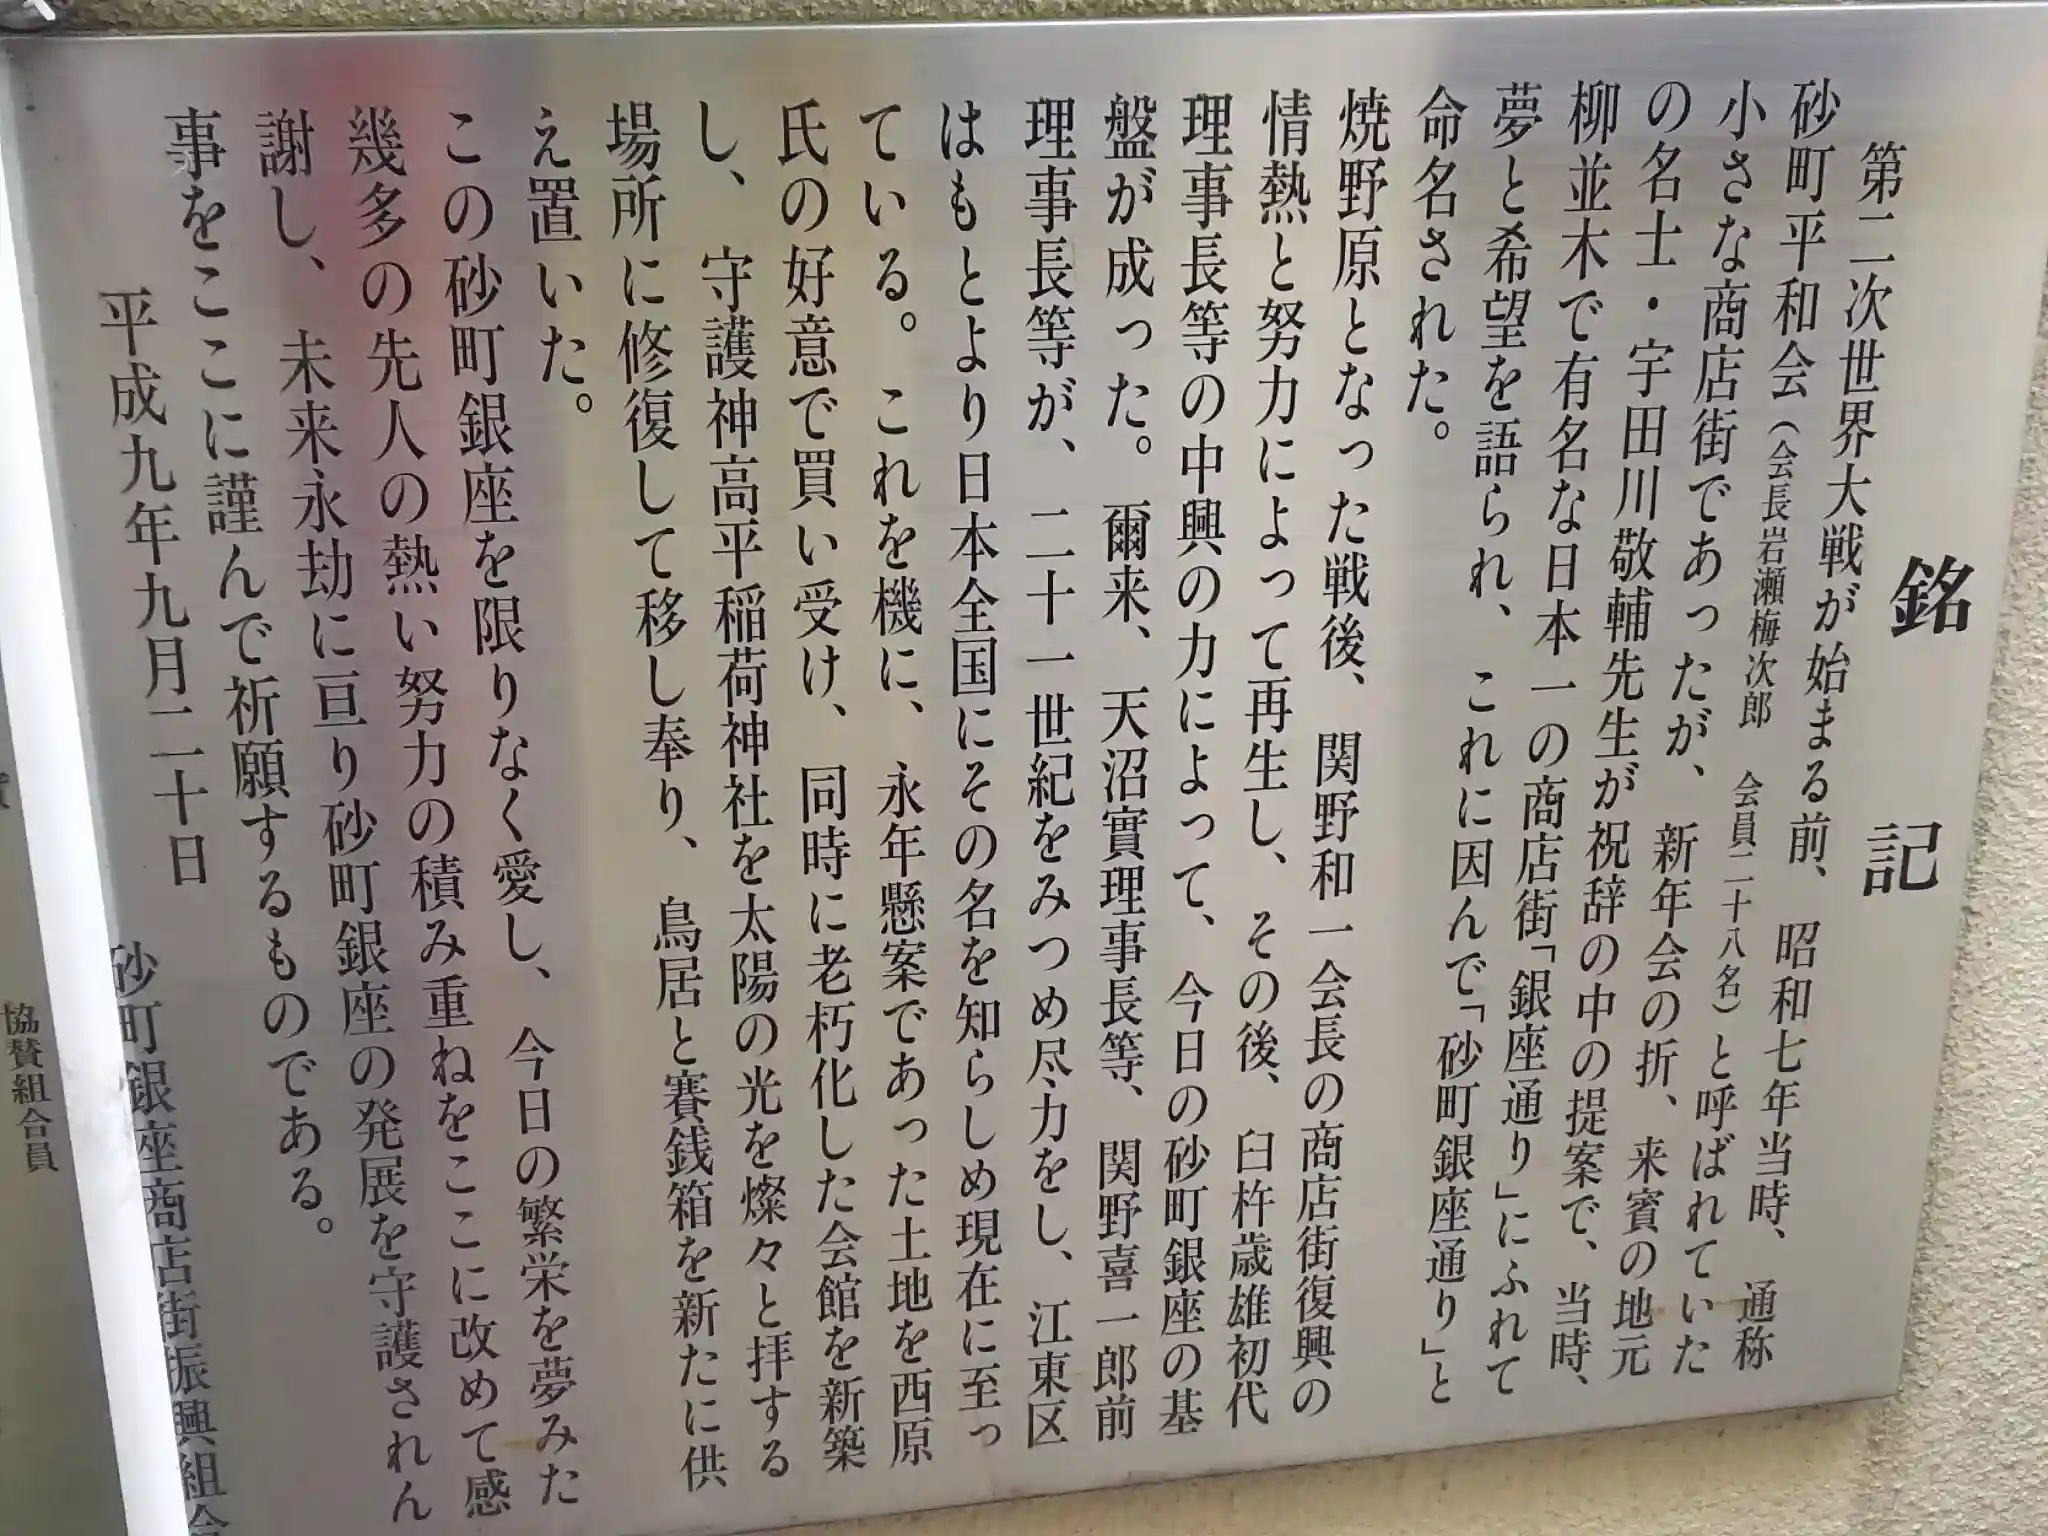 銘記
第二次世界大戦が始まる前、昭和七年当時、通称
砂町平和会(会長岩瀬梅次郎 会員二十八名)と呼ばれていた
小さな商店街であったが、新年会の折、来賓の地元
の名士・宇田川敬輔先生が祝辞の中の提案で、当時、
柳並木で有名な日本一の商店街「銀座通り」にふれて
夢と希望を語られ、これに因んで「砂町銀座通り」と
命名された。
焼野原となった戦後、関野和一会長の商店街復興の
情熱と努力によって再生し、その後、臼杵歳雄初代
理事長等の中興の力によって、今日の砂町銀座の基
盤が成った。爾来、天沼實理事長等、関野喜一郎前
理事長等が、二十一世紀をみつめ尽力をし、江東区
はもとより日本全国にその名を知らしめ現在に至っ
ている。これを機に、永年懸案であった土地を西原
氏の好意で買い受け、同時に老朽化した会館を新築
し、守護神高平稲荷神社を太陽の光を燦々と拝する
場所に修復して移し奉り、鳥居と賽銭箱を新たに供
え置いた。
この砂町銀座を限りなく愛し、今日の繁栄を夢みた
幾多の先人の熱い努力の積み重ねをここに改めて感
謝し、未来永劫に亘り砂町銀座の発展を守護されん
事をここに謹んで祈願するものである。
平成九年九月二十日
砂町銀座商店街振興組合
協賛組合員